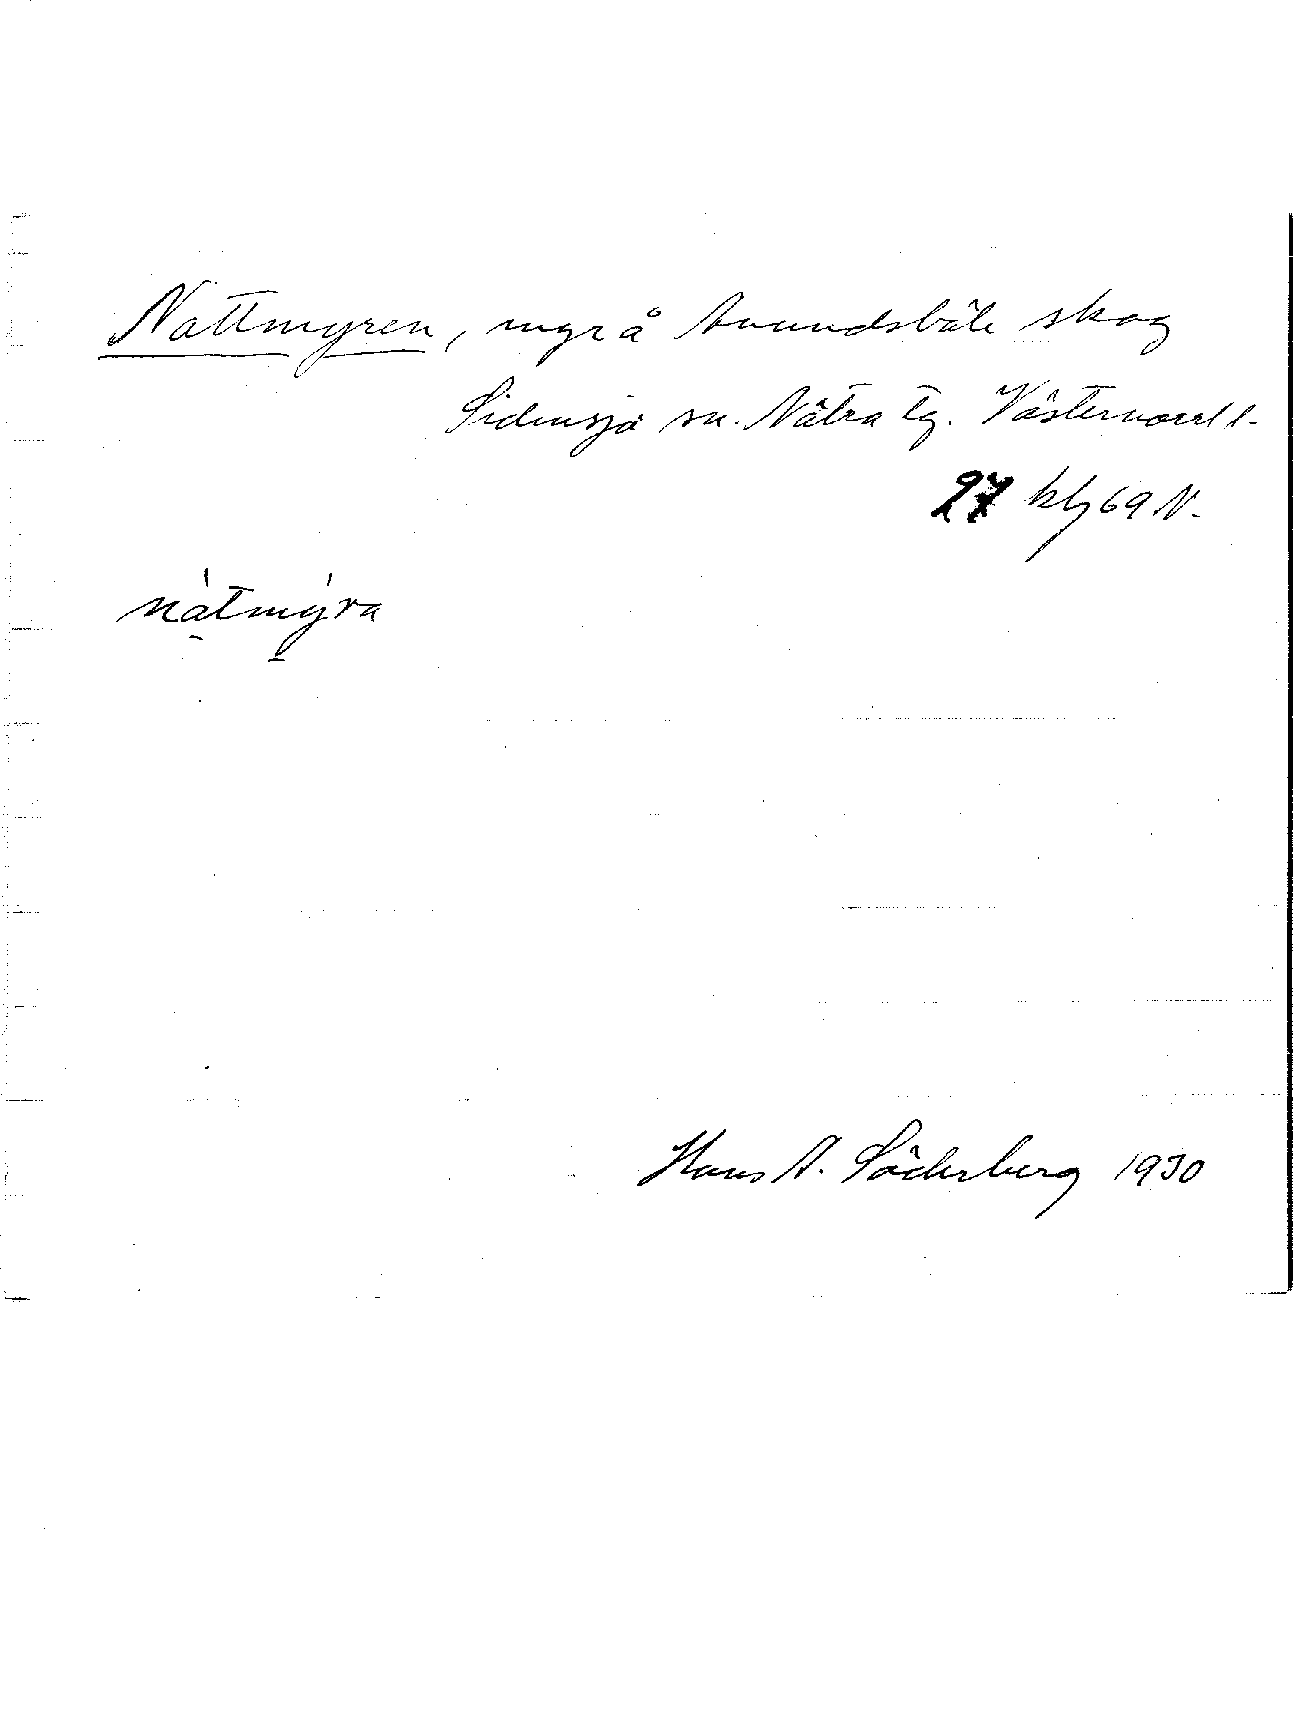 Nattmyren, myr å Avundsböle skog
Sidensjö sn. Nätra tg. Västernorrl l.
27 kbj 69 N.
nàtmýra
Hans A. Söderberg 1930